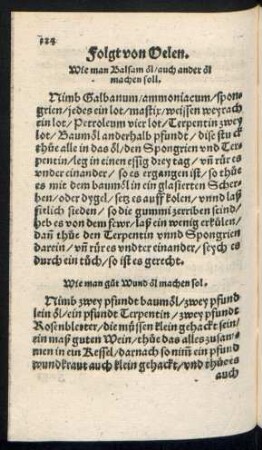 124
Folgt von Oelen.
Wie man Balsam öl/ auch ander öl
machen soll.
Nimb Galbanum/ ammoniacum/ spon-
grien/ jedes ein lot/ mastix/ weissen weyrach
ein lot/ Petroleum vier lot/ Terpentin zwey
lot/ Baumöl anderhalb pfundt/ dise stuck
thůe alle in das öl/ den Spongrien vnd Ter-
pentin/ leg in einen essig drey tag/ vñ růr es
vnder einander/ so es ergangen ist/ so thůe
es mit dem baumöl in ein glasierten Scher-
ben/ oder dygel/ setz es auff kolen/ vnnd laß
sitlich sieden/ so die gummi zerriben seind/
heb es von dem fewr/ laß ein wenig erkülen/
dañ thůe den Terpentin vnnd Spongrien
darein/ vñ růr es vndter einander/ seych es
durch ein tůch/ so ist es gerecht.
Wie man gůt Wund öl machen sol.
Nimb zwey pfundt baumöl/ zwey pfund
lein öl/ ein pfundt Terpentin/ zwey pfundt
Rosenbletter/ die müssen klein gehackt sein/
ein maß guten Wein/ thůe das alles zusam-
men in ein Kessel/ darnach so nim̃ ein pfund
wundkraut auch klein gehackt/ vnd thůe es
auch